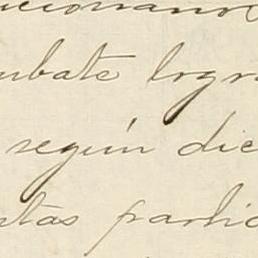 ucionario
mbate logra
según dic
ntas partic